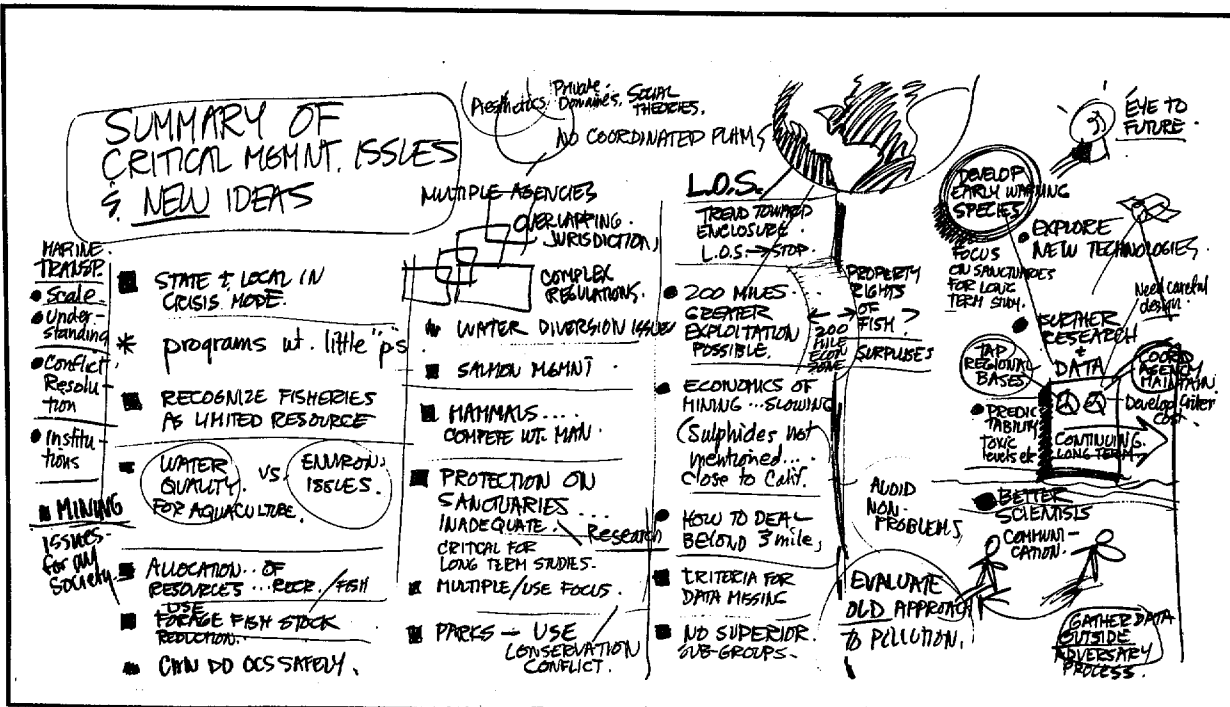 SUMMARY OF
CRITICAL MGMNT. ISSUES
& NEW IDEAS
MARINE
TRANSP.
Scale
Under-
standing
Conflict
Resolu-
tion
Institu-
tions
MINING
issues
for any
society.
STATE & LOCAL IN
CRISIS MODE.
programs wt. little "p's
RECOGNIZE FISHERIES
AS LIMITED RESOURCE
WATER
QUALITY
FOR AQUACULTURE.
VS.
ENVIRON.
ISSUES.
ALLOCATION.. OF
RESOURCES ...RECR. / FISH
USE
FORAGE FISH STOCK
REDUCTION.
CAN DO OCS SAFELY.
Aesthetics
Private
Domaines.
SOCIAL
THEORIES.
NO COORDINATED PLANS
MULTIPLE AGENCIES
OVERLAPPING
JURISDICTION
COMPLEX
REGULATIONS.
WATER DIVERSION ISSUES
SALMON MGMNT
MAMMALS ....
COMPETE WT. MAN.
PROTECTION ON
SANCTUARIES ....
INADEQUATE.
Research
CRITCAL FOR
LONG TERM STUDIES.
MULTIPLE/USE FOCUS.
PARKS — USE
CONSERVATION
CONFLICT.
L.O.S.
TREND TOWARD
ENCLOSURE.
L.O.S. → STOP
200 MILES
GREATER
EXPLOITATION
POSSIBLE.
200
MILE
ECON
ZONE
PROPERTY
RIGHTS
OF
FISH ?
SURPLUSES
ECONOMICS OF
MINING ...SLOWING
(Sulphides not
mentioned...
Close to Calif.
HOW TO DEAL
BEYOND 3 mile,
CRITERIA FOR
DATA MISSING
NO SUPERIOR
SUB-GROUPS.
AVOID
NON-
PROBLEMS
EVALUATE
OLD APPROACH
TO POLLUTION.
EYE TO
FUTURE.
DEVELOP
EARLY WARNING
SPECIES
FOCUS
ON SANCTUARIES
FOR LONG
TERM STUDY.
EXPLORE
NEW TECHNOLOGIES.
Need careful
design.
FURTHER
RESEARCH
+
DATA
TAP
REGIONAL
BASES
COORD
AGENCY
MAINTAIN.
Develop Criter
Cost
PREDIC
TABILITY
TOXIC
levels etc
CONTINUING.
LONG TERM.
BETTER
SCIENTISTS
COMMUNI-
CATION.
GATHER DATA
OUTSIDE
ADVERSARY
PROCESS.